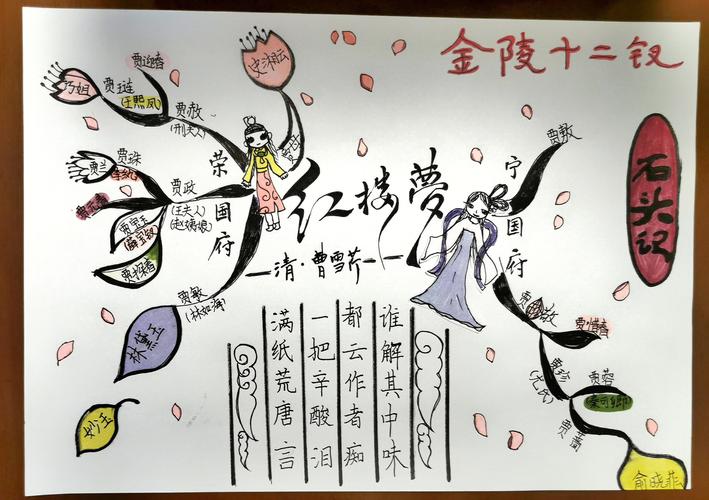 金陵十二钗
石头记
红楼梦
清·曹雪芹
荣国府
宁国府
史湘云
贾迎春
巧姐
贾琏
(王熙凤)
贾赦
(刑夫人)
贾兰
贾珠
李纨
贾政
(王夫人)
(赵姨娘)
贾元春
贾宝玉
(薛宝钗)
贾探春
贾敏
(林如海)
林黛玉
妙玉
贾敷
贾敬
贾惜春
贾珍
(尤氏)
贾蓉
秦可卿
贾蔷
俞晓菲
满纸荒唐言
一把辛酸泪
都云作者痴
谁解其中味